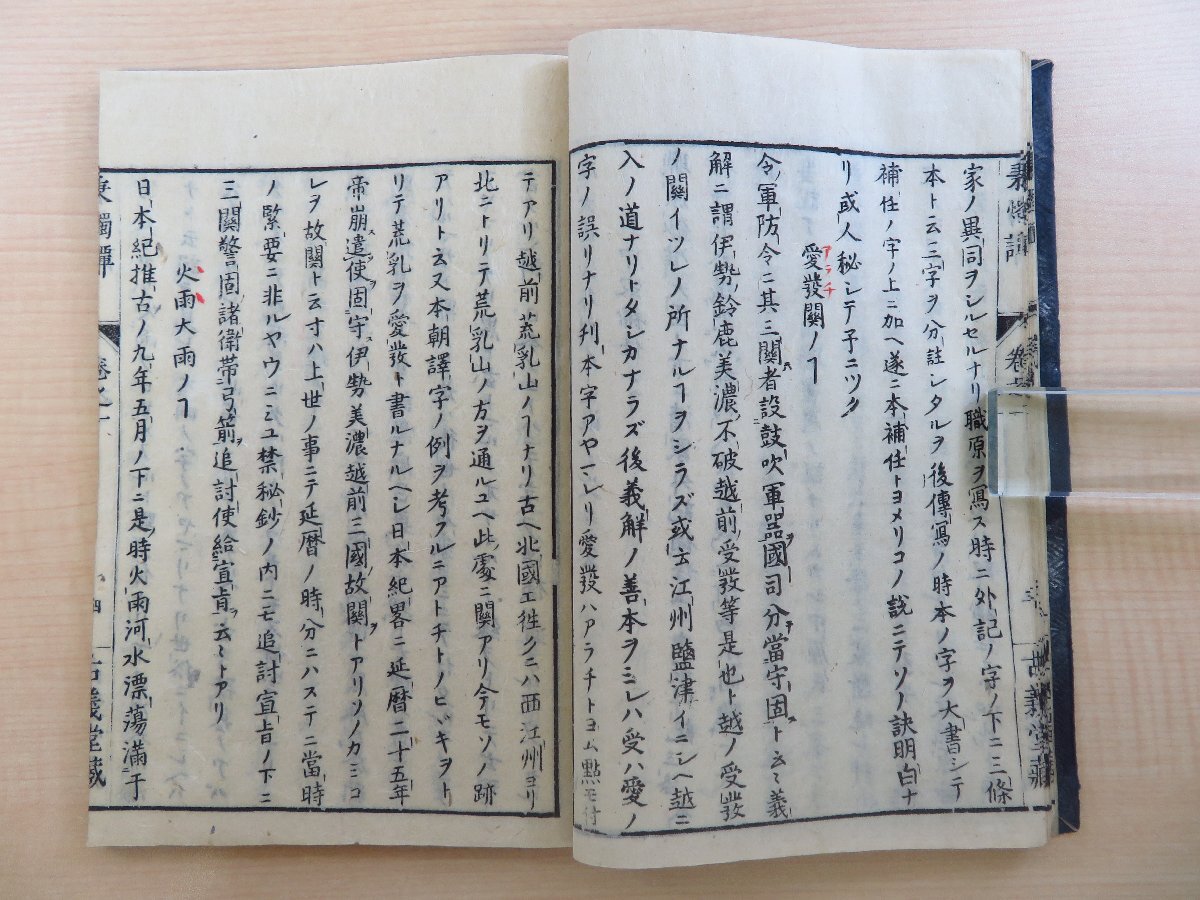 秉燭譚
卷之一
古義堂藏
家ノ異同ヲシルセルナリ職原ヲ寫ス時ニ外記ノ字ノ下ニ三條
本ト云三字ヲ分註シタルヲ後傳寫ノ時本ノ字ヲ大書シテ
補任ノ字ノ上ニ加ヘ遂ニ本補任トヨメリコノ説ニテソノ訣明白ナ
リ或人秘シテ予ニツグ
愛發關ノヿ
アラチ
令軍防令ニ其三關者設鼓吹軍器國司分當守固ト云々義
解ニ謂伊勢鈴鹿美濃不破越前受發等是也ト越ノ受發
ノ關イツレノ所ナルヿヲシラズ或云江州鹽津イニシヘ越ニ
入ノ道ナリトタシカナラズ後義解ノ善本ヲミレハ受ハ愛ノ
字ノ誤リナリ刋本字アヤマレリ愛發ハアラチトヨム點モ付
テアリ越前荒乳山ノヿナリ古ヘ北國エ徃クニハ西江州ヨリ
北ニトリテ荒乳山ノ方ヲ通ルユヘ此處ニ關アリ今モソノ跡
アリト云又本朝譯字ノ例ヲ考フルニアトチトノヒビキヲト
リテ荒乳ヲ愛發ト書ルナルヘシ日本紀畧ニ延曆二十五年
帝崩遣使固守伊勢美濃越前三國故関トアリソノカミコ
レヲ故関ト云寸ハ上世ノ事ニテ延曆ノ時分ニハステニ當時
ノ緊要ニ非ルヤウニミユ禁秘鈔ノ内ニモ追討宣旨ノ下ニ
三關警固諸衛帶弓箭追討使給宣旨云々トアリ
火雨大雨ノヿ
日本紀推古ノ九年五月ノ下ニ是時火雨河水漂蕩滿于
秉燭譚
卷之一
四
古義堂藏